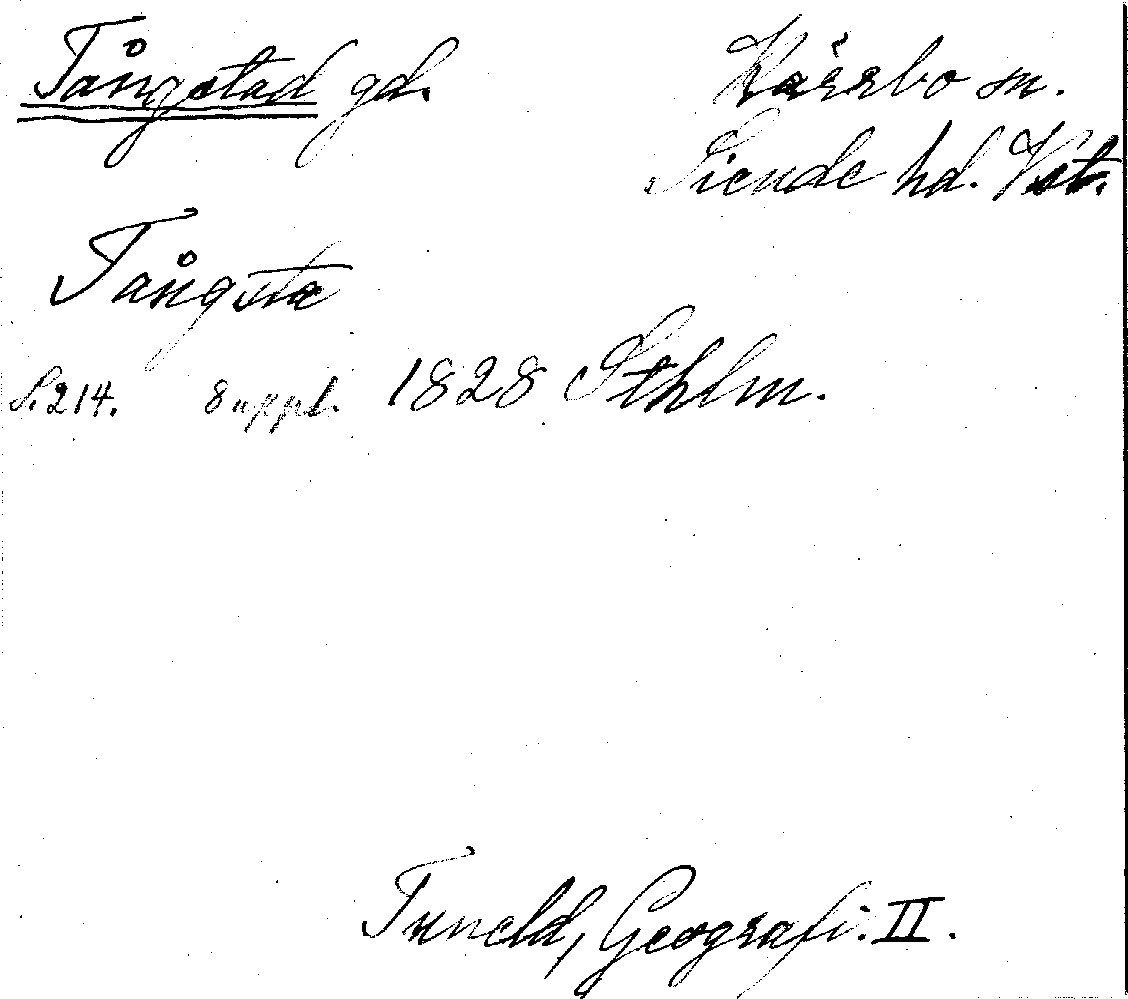 Tångstad gd. Kärrbo sn.
Siende hd. Vst.
Tångsta
S. 214. 8 uppl. 1828 Sthlm.
Tuneld, Geografi. II.